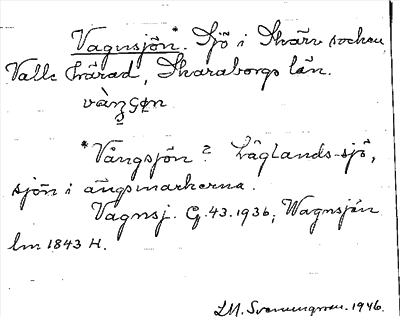 Vagnsjön*. Sjö i Skärv socken
Valle härad, Skaraborgs län.
*Vångsjön? Låglands-sjö,
sjön i ängsmarkerna.
Vagnsj. G. 43. 1936; Wagnsjön
lm 1843 H.
Svenungsson. 1946.